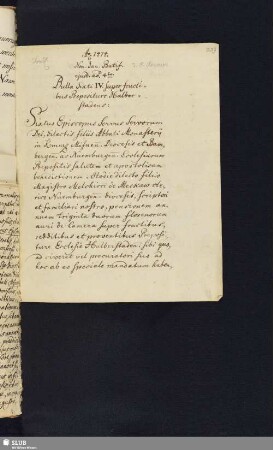 Ao 1474.
Non. Jan. Pontif.
ejusd. a. 4to
Bulla Sixti IV. super fructi-
bus Præpositure Halber-
stadens:
Sixtus Episcopus Servus Servorum
Dei, dilectis filiis Abbati Monasterii
in Diocesis et
ac Nurenburgen. Ecclesiarum
Præpositis salutem et apostolicam
benedictionem. Hodie dilecto filio
Magistro Melchiori de Meckaw cle-
rico diocesis, Scriptori
et familiari nostro, pensionem an-
nuam triginta duorum florenorum
auri de Camera super fructibus,
redditibus et proventibus Præposi-
ture Ecclesie Halberstaden. sibi quo
ad vixerit vel procuratori suo ad
hoc ab eo speciale mandatum haben,
SLUB